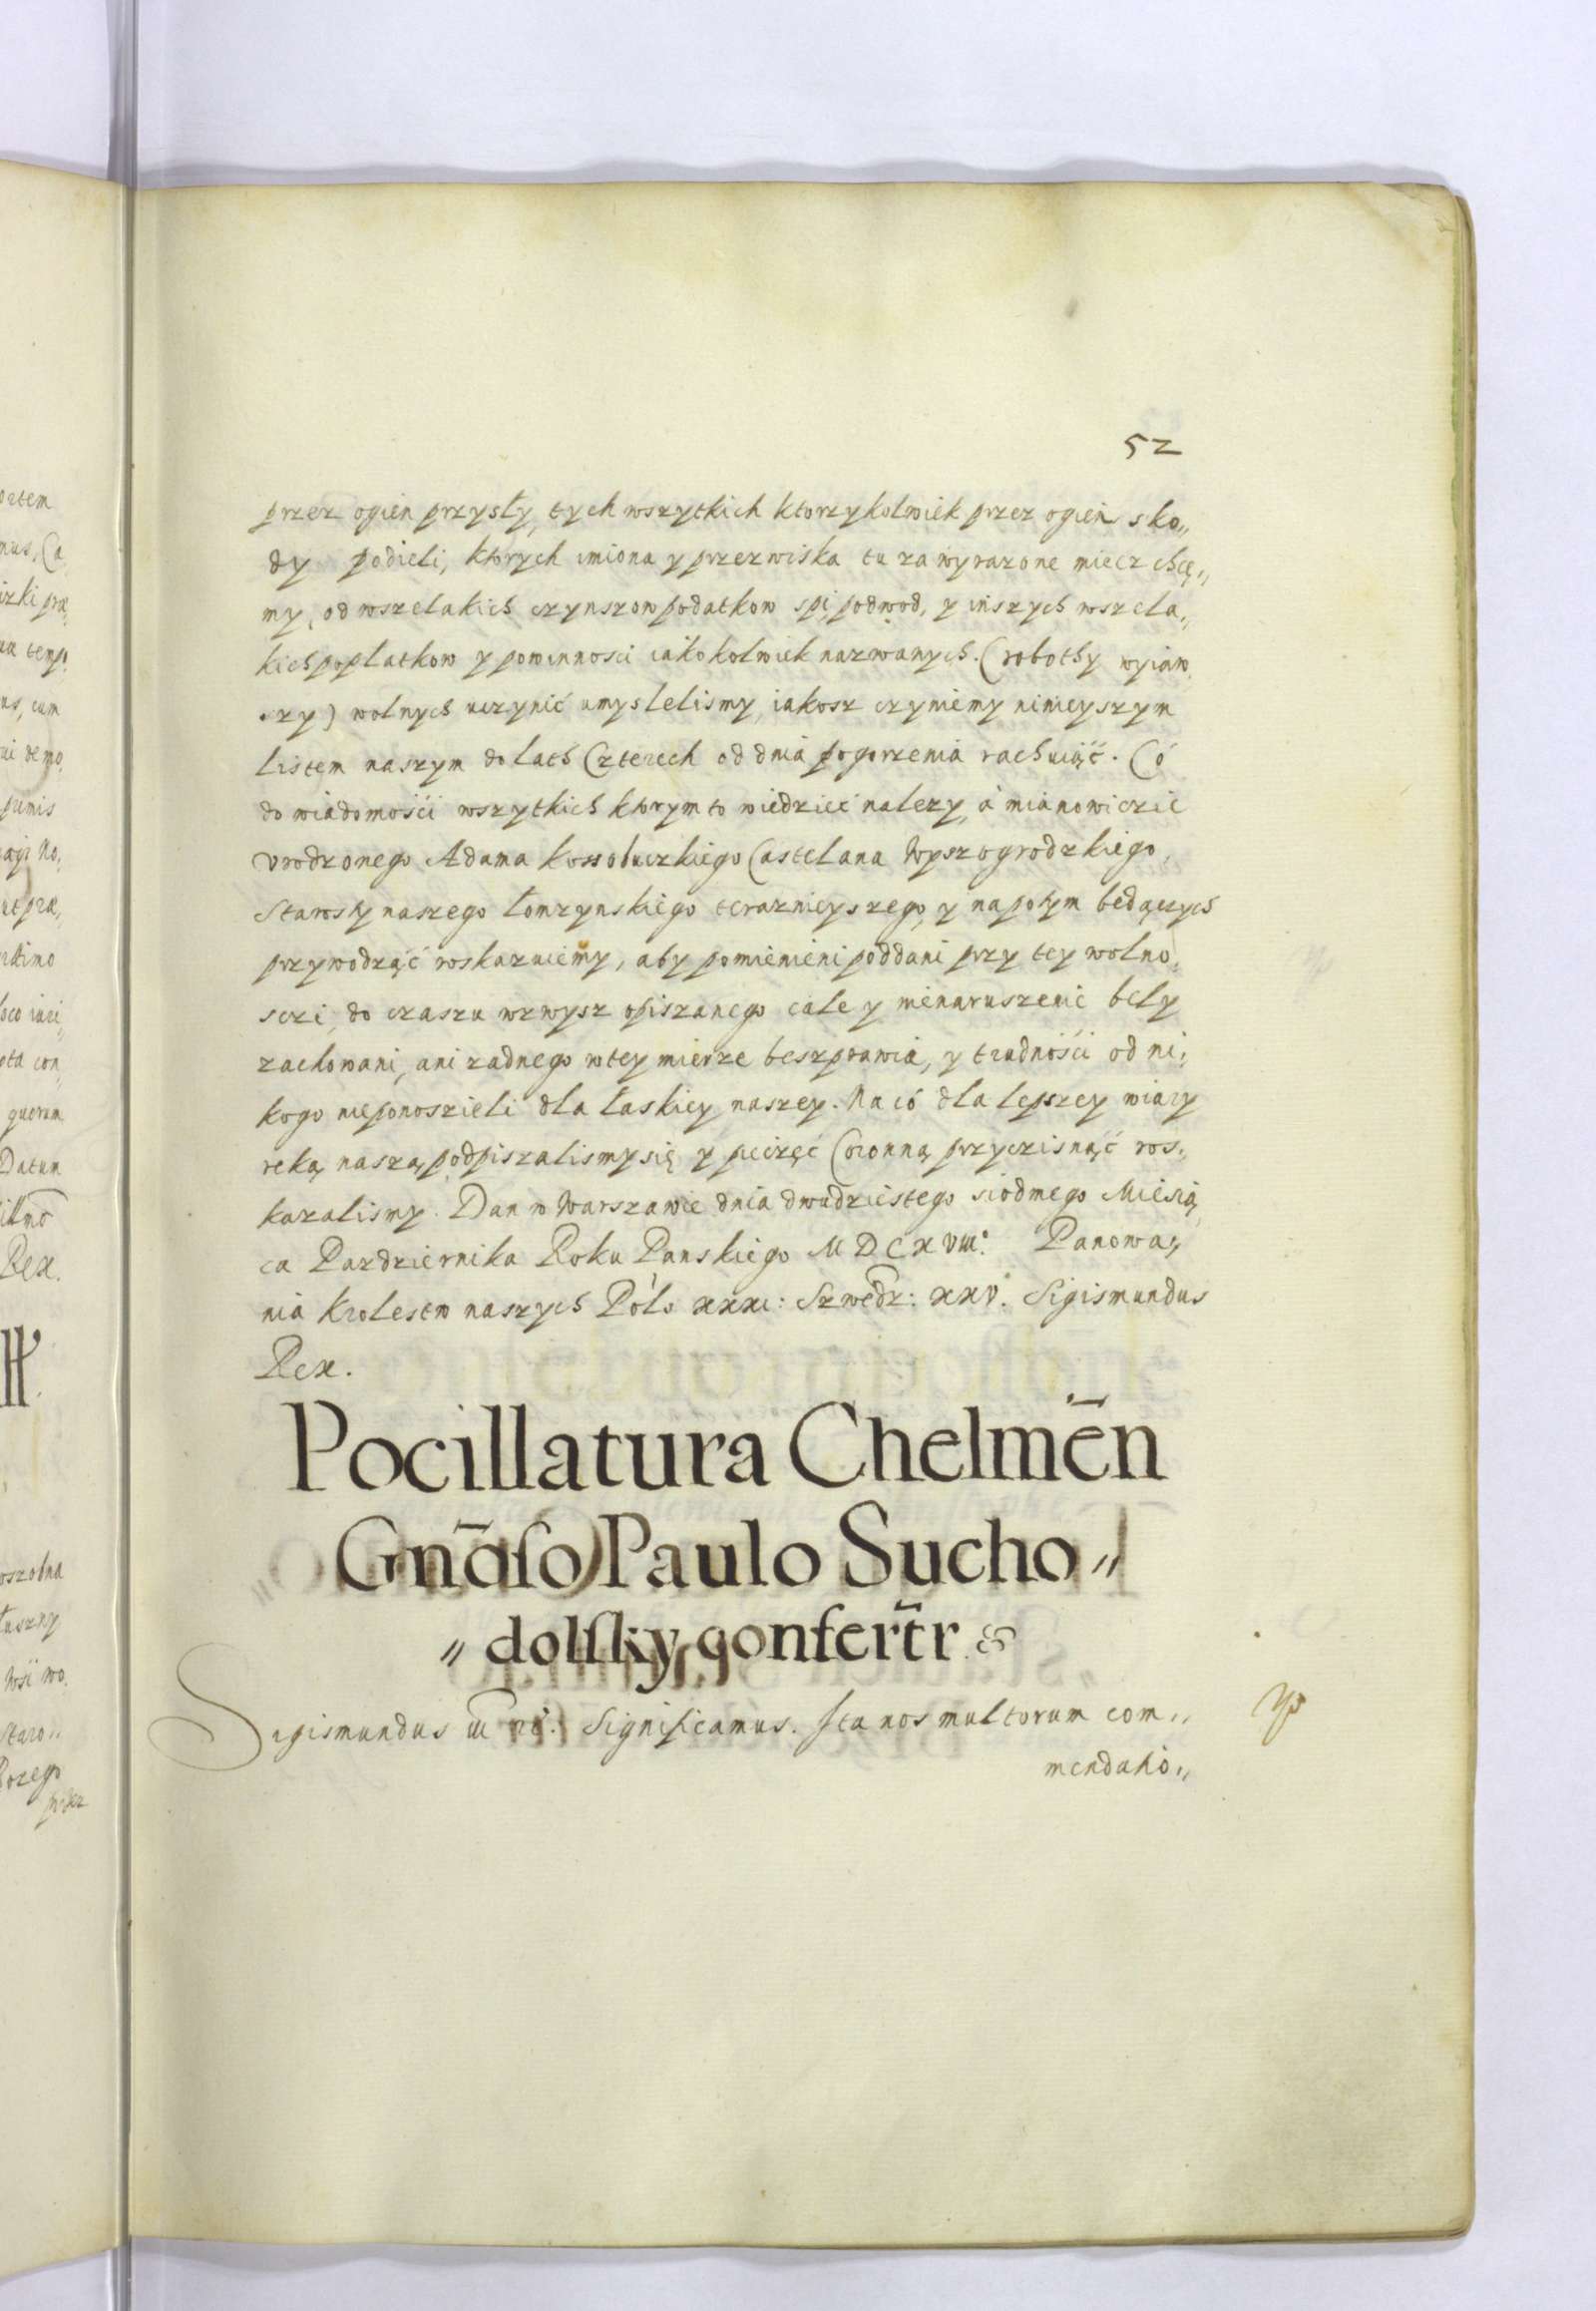 52
przez ogien przysły, tych wszytkich ktorzykolwiek przez ogien sko„
dy podieli, ktorych imiona y przezwiska tu za wyrazone miecz chcę„
my, od wszelakich czynszow podatkow spi, podwod, y inszych wszela„
kich poplatkow y powinnosci iakokolwiek nazwanych. (robothy wyiaw
szy) wolnych uczynić umyslelismy, iakosz czyniemy ninieyszym
listem naszym do lath Czterech od dnia pogorzenia rachuiąć. Có
do wiadomości wszytkich ktorym to wiedzieć nalezy, á mianowiczie
Vrodzonego Adama Kossobuczkiego Castelana Wyszogrodzkiego,
Starosty naszego Łomzynskiego terazniejszego, y napotym będączych
przywodząć roskazuiemy, aby pomienieni poddani przy tey wolno„
sczi, do czaszu wzwysz opiszanego cale y nienaruszenie bely
zachowani, ani zadnego w tey mierze beszprawia, y trudności od ni„
kogo nieponoszieli dla łaskiey naszey. Na có dla lepszey wiary
reką naszą podpiszalismy się y pieczęć Coronną przyczisnąć ros„
kazalismy. Dan w Warszawie dnia dwudziestego siodmego Miesią
ca Pazdziernika Roku Panskiego MDCXVIII. Panowa„
nia Krolestw naszych Pols XXXI: Szwedz: XXV. Sigismundus
Rex.
Pocillatura Chelmēn
Gn̄oſo Paulo Sucho„
„dolſky conferr̄tr
Sigismundus III etc. Significamus. Ita nos multorum com„
mendatio„
ortem
nus, Ca
izki præ
ua temp
us, cum
ui demo
punis
agi No
ut præ
loco iuri
ota con
quorum
Datum
Rex.
oszobna
łuszny
Wsi Wo
Staro„
Bozego
przez